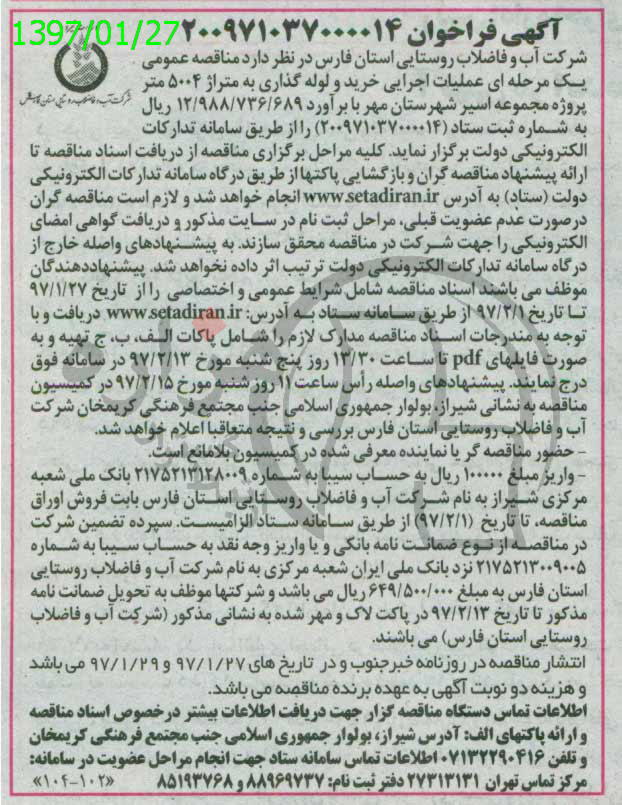 1397/01/27
آگهی فراخوان ۲۰۰۹۷۱۰۳۷۰۰۰۰۱۴
شرکت آب و فاضلاب روستایی استان فارس در نظر دارد مناقصه عمومی
یک مرحله ای عملیات اجرایی خرید و لوله گذاری به متراژ ۵۰۰۴ متر
پروژه مجموعه اسیر شهرستان مهر با برآورد ۱۲/۹۸۸/۷۳۶/۶۸۹ ریال
به شماره ثبت ستاد (۲۰۰۹۷۱۰۳۷۰۰۰۰۱۴) را از طریق سامانه تدارکات
الکترونیکی دولت برگزار نماید. کلیه مراحل برگزاری مناقصه از دریافت اسناد مناقصه تا
ارائه پیشنهاد مناقصه گران و بازگشایی پاکتها از طریق درگاه سامانه تدارکات الکترونیکی
دولت (ستاد) به آدرس www.setadiran.ir انجام خواهد شد و لازم است مناقصه گران
درصورت عدم عضویت قبلی، مراحل ثبت نام در سایت مذکور و دریافت گواهی امضای
الکترونیکی را جهت شرکت در مناقصه محقق سازند. به پیشنهادهای واصله خارج از
درگاه سامانه تدارکات الکترونیکی دولت ترتیب اثر داده نخواهد شد. پیشنهاددهندگان
موظف می باشند اسناد مناقصه شامل شرایط عمومی و اختصاصی را از تاریخ ۹۷/۱/۲۷
تا تاریخ ۹۷/۲/۱ از طریق سامانه ستاد به آدرس: www.setadiran.ir دریافت و با
توجه به مندرجات اسناد مناقصه مدارک لازم را شامل پاکات الف، ب، ج تهیه و به
صورت فایلهای pdf تا ساعت ۱۳/۳۰ روز پنج شنبه مورخ ۹۷/۲/۱۳ در سامانه فوق
درج نمایند. پیشنهادهای واصله رأس ساعت ۱۱ روز شنبه مورخ ۹۷/۲/۱۵ در کمیسیون
مناقصه به نشانی شیراز، بولوار جمهوری اسلامی جنب مجتمع فرهنگی کریمخان شرکت
آب و فاضلاب روستایی استان فارس بررسی و نتیجه متعاقبا اعلام خواهد شد.
- حضور مناقصه گر یا نماینده معرفی شده در کمیسیون بلامانع است.
- واریز مبلغ ۱۰۰۰۰۰ ریال به حساب سیبا به شماره ۲۱۷۵۲۱۳۱۲۸۰۰۹ بانک ملی شعبه
مرکزی شیراز به نام شرکت آب و فاضلاب روستایی استان فارس بابت فروش اوراق
مناقصه، تا تاریخ (۹۷/۲/۱) از طریق سامانه ستاد الزامیست. سپرده تضمین شرکت
در مناقصه از نوع ضمانت نامه بانکی و یا واریز وجه نقد به حساب سیبا به شماره
۲۱۷۵۲۱۳۰۰۹۰۰۵ نزد بانک ملی ایران شعبه مرکزی به نام شرکت آب و فاضلاب روستایی
استان فارس به مبلغ ۶۴۹/۵۰۰/۰۰۰ ریال می باشد و شرکتها موظف به تحویل ضمانت نامه
مذکور تا تاریخ ۹۷/۲/۱۳ در پاکت لاک و مهر شده به نشانی مذکور (شرکت آب و فاضلاب
روستایی استان فارس) می باشند.
انتشار مناقصه در روزنامه خبرجنوب و در تاریخ های ۹۷/۱/۲۷ و ۹۷/۱/۲۹ می باشد
و هزینه دو نوبت آگهی به عهده برنده مناقصه می باشد.
اطلاعات تماس دستگاه مناقصه گزار جهت دریافت اطلاعات بیشتر درخصوص اسناد مناقصه
و ارائه پاکتهای الف: آدرس شیراز، بولوار جمهوری اسلامی جنب مجتمع فرهنگی کریمخان
و تلفن ۰۷۱۳۲۲۹۰۴۱۶ اطلاعات تماس سامانه ستاد جهت انجام مراحل عضویت در سامانه:
مرکز تماس تهران ۲۷۳۱۳۱۳۱ دفتر ثبت نام: ۸۸۹۶۹۷۳۷ و ۸۵۱۹۳۷۶۸ «۱۰۲-۱۰۴»